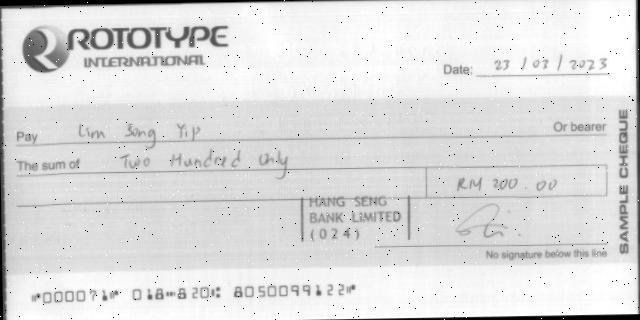 ROTOTYPE
INTERNATIONAL
Date: 23 / 03 / 2023
Pay Lim Song Yip Or bearer
The sum of Two Hundred Only
RM 200.00
HANG SENG
BANK LIMITED
(024)
No signature below this line
SAMPLE CHEQUE
⑈000071⑈ 018⑉820⑆ 8050099122⑈